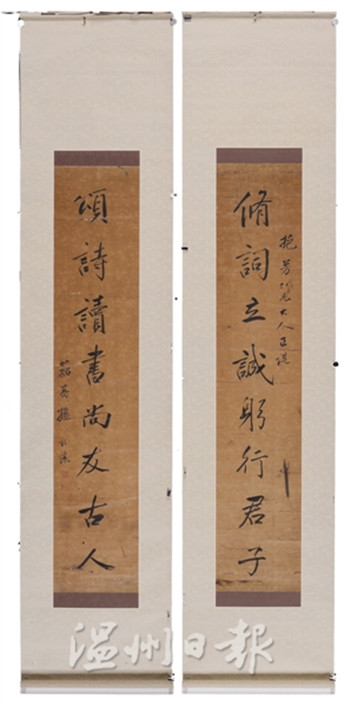 抱芳仁兄大人正謬
脩詞立誠躬行君子
頌詩讀書尚友古人
温州日報